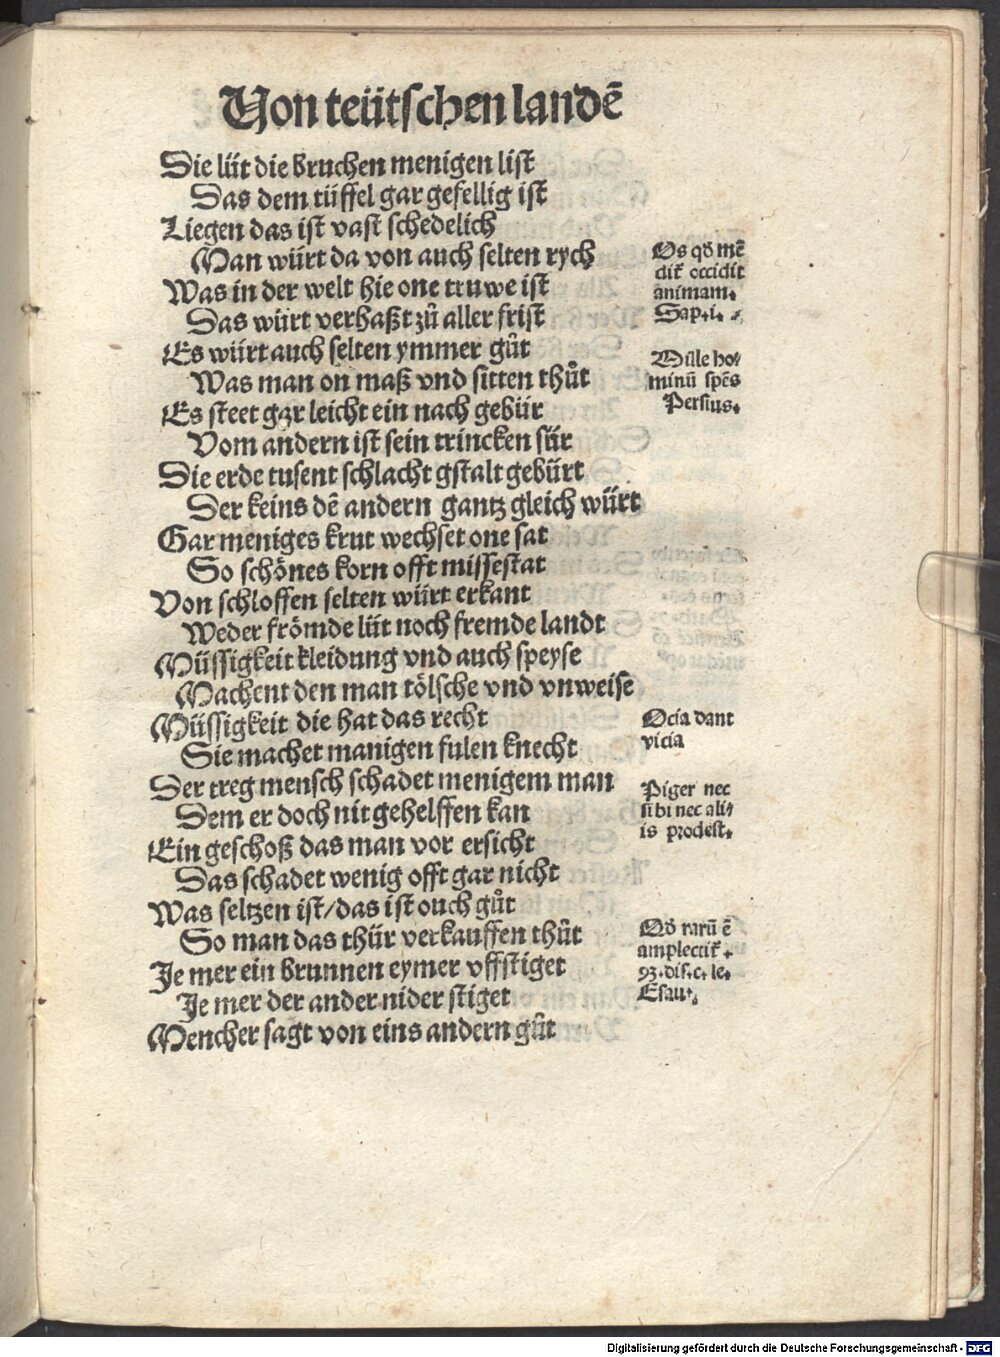 Von teütschen landē
Die lüt die bruchen menigen list
Das dem tüffel gar gefellig ist
Liegen das ist vast schedelich
Man würt da von auch selten rych
Was in der welt hie one truwe ist
Das würt verhaßt zů aller frist
Es würt auch selten ymmer gůt
Was man on maß vnd sitten thůt
Es steet gar leicht ein nach gebür
Vom andern ist sein trincken sür
Die erde tusent schlacht gstalt gebürt
Der keins dē andern gantz gleich würt
Gar meniges krut wechset one sat
So schönes korn offt missestat
Von schloffen selten würt erkant
Weder frömde lüt noch fremde landt
Müssigkeit kleidung vnd auch speyse
Machent den man tölsche vnd vnweise
Müssigkeit die hat das recht
Sie machet manigen fulen knecht
Der treg mensch schadet menigem man
Dem er doch nit gehelffen kan
Ein geschoß das man vor ersicht
Das schadet wenig offt gar nicht
Was seltzen ist/das ist ouch gůt
So man das thür verkauffen thůt
Je mer ein brunnen eymer vffstiget
Je mer der ander nider stiget
Mencher sagt von eins andern gůt
Os qd mē
dit occidit
animam.
Sap.i.
Mille ho/
minū spēs
Persius.
Ocia dant
vicia
Piger nec
sibi nec ali/
is prodest.
Qd rarū ē
amplectit.
93.dis.c.le.
Esau.
Digitalisierung gefördert durch die Deutsche Forschungsgemeinschaft - DFG